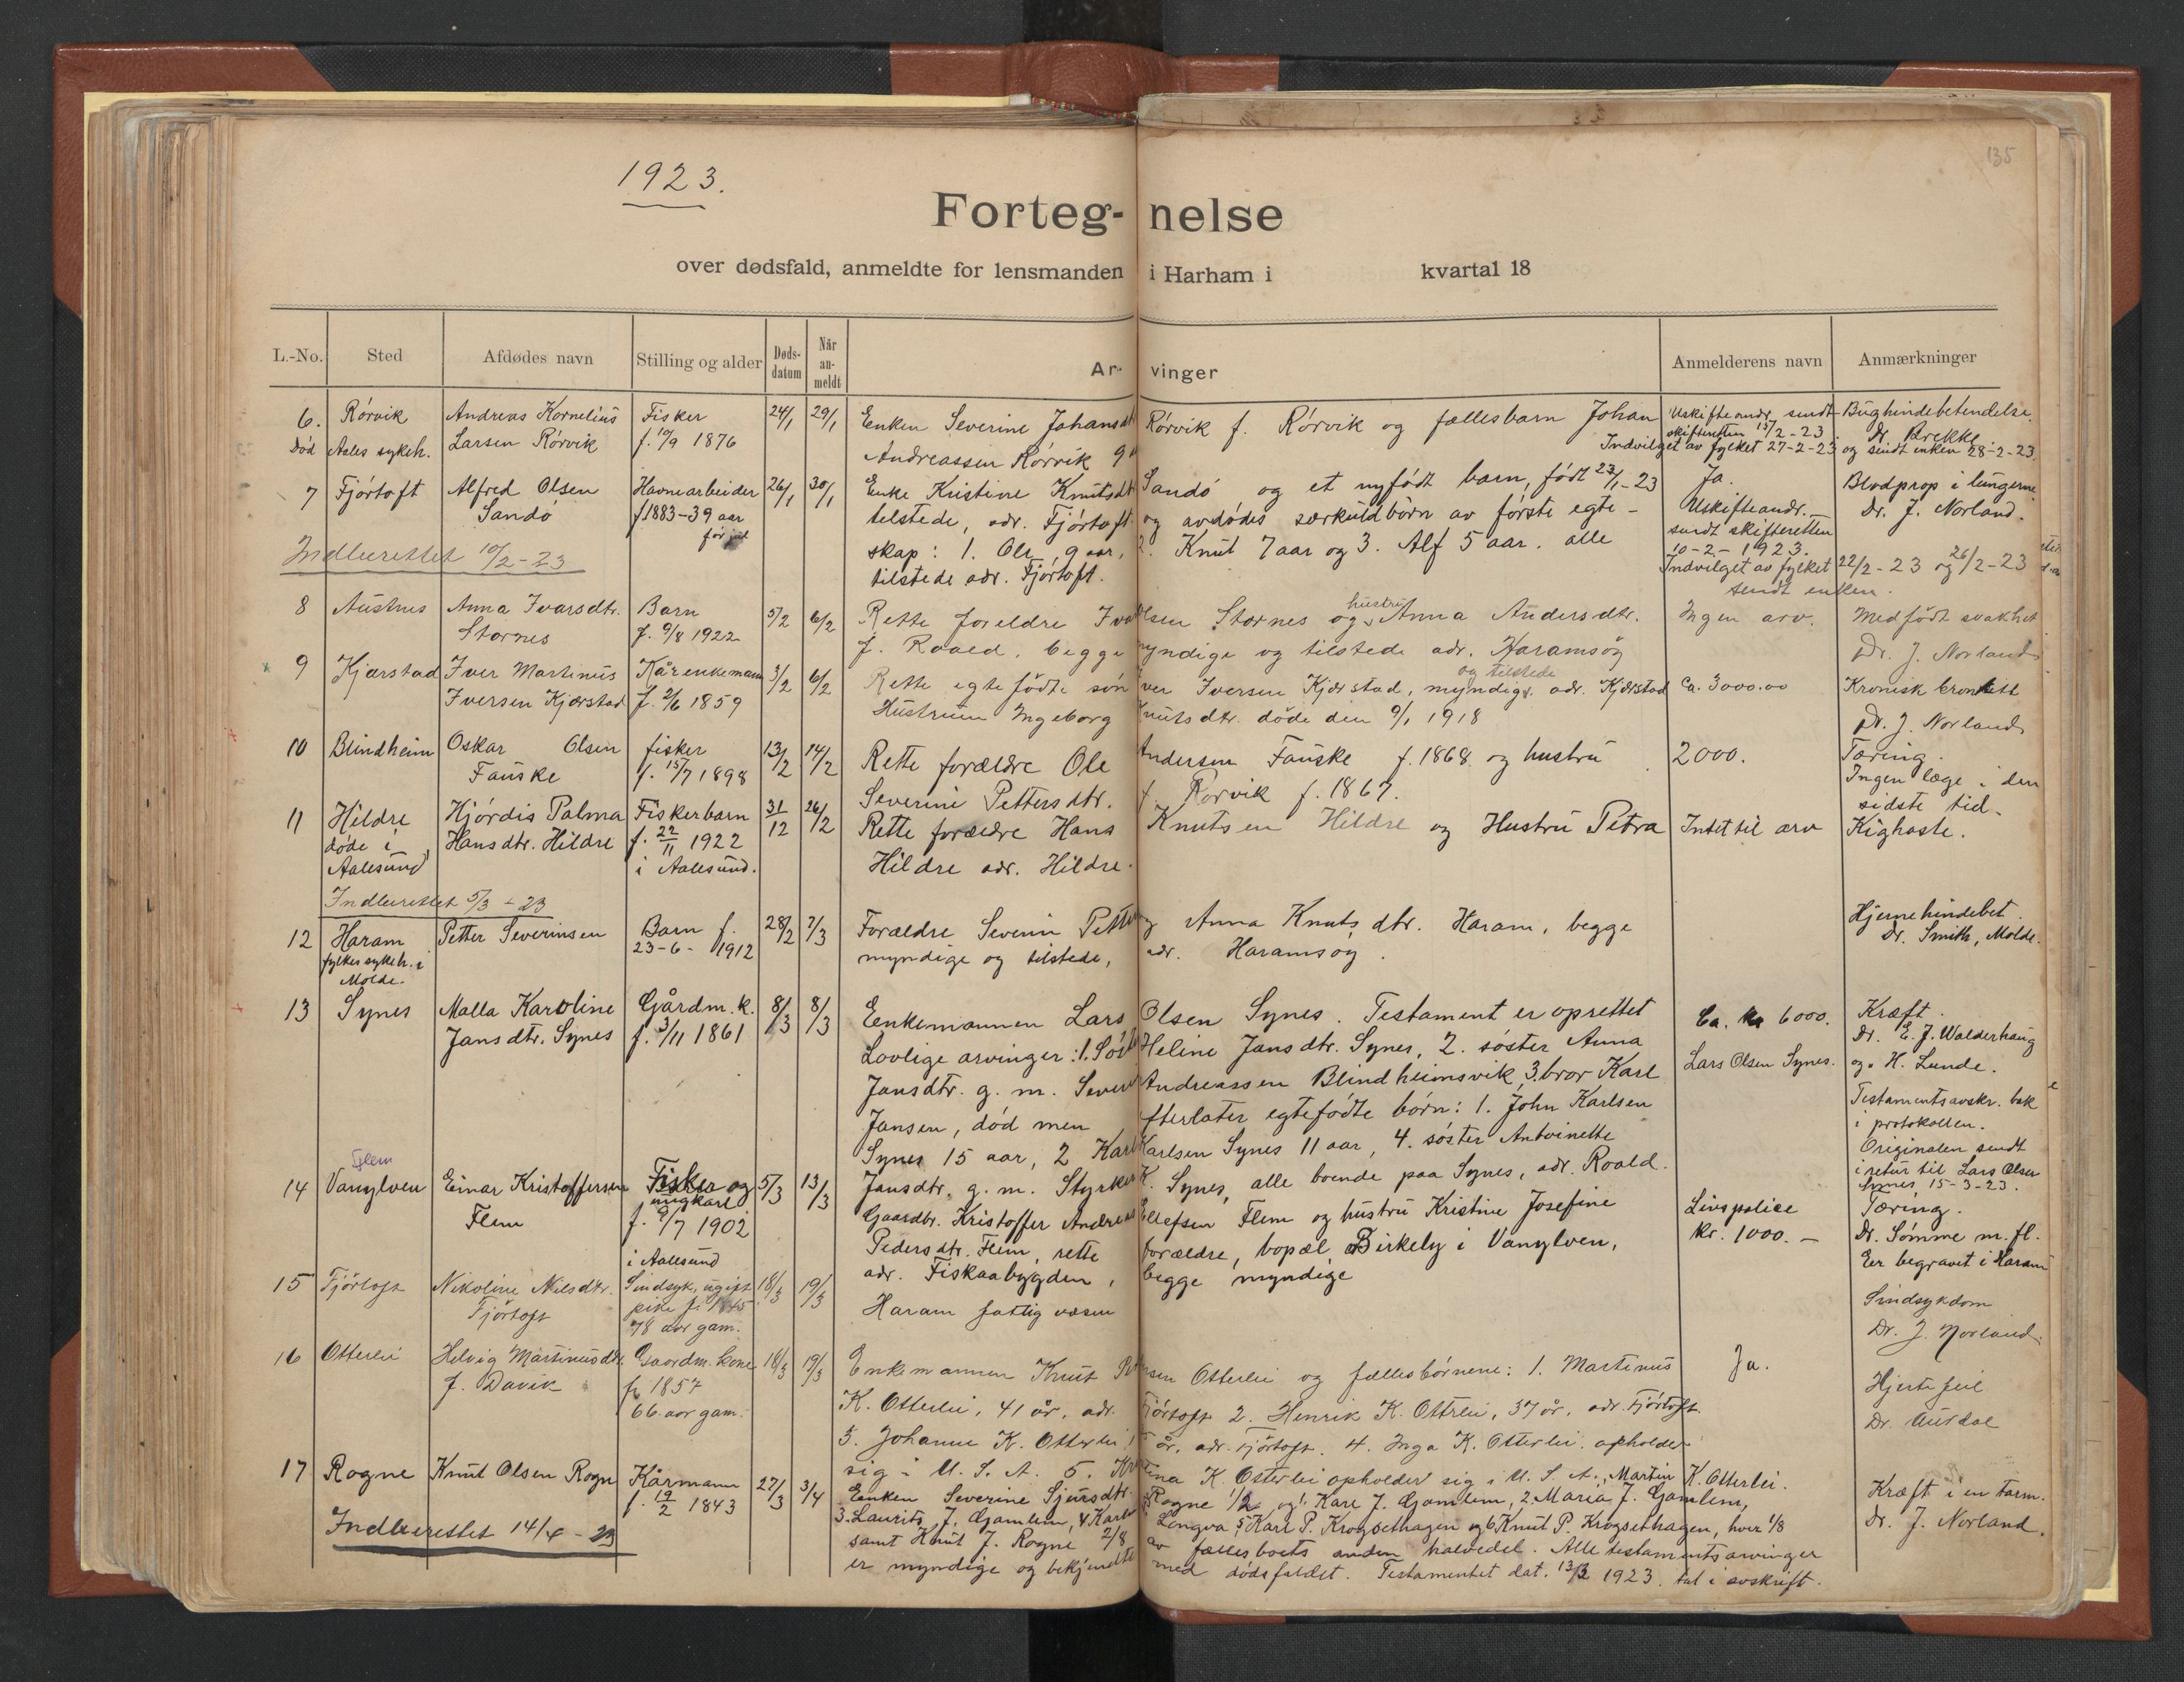 135
1923.
Forteg- nelse
over dødsfald, anmeldte for lensmanden i Harham i kvartal 18
L.-No. Sted Afdødes navn Stilling og alder Døds-datum Når an-meldt Ar- vinger Anmelderens navn Anmærkninger
6. Rörvik Andreas Kornelius Fisker 24/1 29/1 Enken Severine Johansdt Rörvik f. Rörvik og fællesbarn Johan Uskifteandr. sendt Bughindebetendelse
Död Aales sykeh. Larsen Rörvik f. 10/9 1876 Andreassen Rörvik skifteretten 15/2-23 Dr. Brekke
Indvilget av fylket 27-2-23 og sendt enken 28-2-23.
7 Fjörtoft Alfred Olsen Havnearbeider 26/1 30/1 Enke Kristine Knutsdt Sandö og et nyfödt barn, födt 23/1-23 Ja. Blodprop i lungerne
Sandö f 1883-39 aar tilstede, adr. Fjörtoft og avdödes særkuldbörn av förste egte- Uskifteandr.- Dr. J. Norland.
skap: 1. Ole, 9 aar, 2. Knut 7 aar og 3. Alf 5 aar. alle sendt skifteretten
Indberettet 10/2-23 tilstede adr. Fjörtoft. 10-2-1923.
Indvilget av fylket 22/2-23 og 26/2-23
sendt enken.
8 Austnes Anna Ivarsdtr. Barn 5/2 6/2 Rette foreldre Ivar Olsen Stornes og hustru Anna Andersdtr. Ingen arv. Medfödt svakhet
Stornes f. 9/8 1922 f. Roald, begge myndige og tilstede adr. Haramsöy Dr. J. Norland
9 Kjærstad Iver Martinus Kårenkemann 3/2 6/2 Rette egtefödte sön Iver Iversen Kjærstad, myndig og tilstede, adr. Kjærstad Ca. 3000.00 Kronisk bronkitt
Iversen Kjærstad f. 2/6 1859 Hustruen Ingeborg Knutsdtr. döde den 9/1 1918 Dr. J. Norland
10 Blindheim Oskar Olsen fisker 13/2 14/2 Rette forældre Ole Andersen Fauske f. 1868 og hustru 2000. Tæring.
Fauske f. 15/7 1898 Severine Pettersdtr. f Rorvik f. 1867. Ingen læge i den
sidste tid.
11 Hildre Hjördis Palma Fiskerbarn 31/12 26/2 Rette forældre Hans Knutsen Hildre og Hustru Petra Intet til arv Kighoste.
döde i Hansdtr. Hildre f. 22/11 1922 Hildre adr. Hildre.
Aalesund i Aalesund.
Indberettet 5/3-23
12 Haram Petter Severinsen Barn f. 28/2 7/3 Forældre Severin Petter og Anna Knutsdtr. Haram, begge Hjernehindebet.
fylkessykeh. i 23-6-1912 myndige og tilstede, adr. Haramsöy. Dr. Smith, Molde.
Molde.
13 Synes Malla Karoline Gårdm.k. 8/3 8/3 Enkemannen Lars Olsen Synes. Testament er oprettet Ca. kr 6000. Kræft.
Jansdtr. Synes f. 3/11 1861 Lovlige arvinger: 1. Söster Heline Jansdtr. Synes, 2. söster Anna Dr. E. J. Walderhaug
Jansdtr. g. m. Severin Andreassen Blindheimsvik 3. bror Karl Lars Olsen Synes. og H. Lunde.
Jansen, död men efterlater egtefödte börn: 1. John Karlsen Testamentsavskr. bak
Synes 15 aar, 2 Karl Karlsen Synes 11 aar, 4. söster Antoinette i protokollen.
Jansdtr. g. m. Styrker K. Synes, alle boende paa Synes, adr. Roald. Originalen sendt
i retur til Lars Olsen
Synes 15-3-23.
Flem
14 Vanylven Einar Kristoffersen Fisker og 5/3 13/3 Gaardbr. Kristoffer Andreas Ellefsen Flem og hustru Kristine Josefine Livspolice Tæring.
Flem ungkarl Pedersdtr. Flem, rette forældre, bopæl Birkely i Vanylven, kr. 1000.- Dr. Sömme m. fl.
f. 9/7 1902 adr. Fiskaabygden, begge myndige Er begravet i Haram
i Aalesund
15 Fjörtoft Nikoline Nilsdtr. Sindsyk, ugift 18/3 19/3 Haram fattigvæsen Sindsykdom
Fjörtoft pike f. 1845 Dr. J. Norland.
78 aar gam.
16 Otterlei Helvig Martinusdtr. Gaardm. kone 18/3 19/3 Enkemannen Knut Olsen Otterlei og fællesbörnene: 1. Martinus Ja. Hjertefeil
f. Davik f. 1857 K. Otterlei, 41 år, adr. Fjörtoft 2. Henrik K. Otterlei, 37 år, adr. Fjörtoft. Dr. Aursdal
66 aar gam. 3. Johanne K. Otterlei, år, adr. Fjörtoft. 4. Inga K. Otterlei opholder
sig i U. S. A. 5. K. Otterlei opholder sig i U. S. A., Martin K. Otterlei.
17 Rogne Knut Olsen Rogne Kårmann 27/3 3/4 Enken Severine Sjursdtr. Rogne 1/2 og 1. Kare J. Gamlem, 2. Maria J. Gamlem, Kræft i en tarm.
f. 19/2 1843 3. Laurits J. Gamlem, 4 Karl Longva, 5 Karl P. Krogsethagen og 6 Knut P. Krogsethagen, hver 1/8 Dr. J. Norland.
Indberettet 14/4-23 samt Knut J. Rogne 2/8 av fællesboets anden halvedel. Alle testamentsarvinger
er myndige og bekjendte med dödsfaldet. Testamentet dat. 13/3 1923. tat i avskrift.